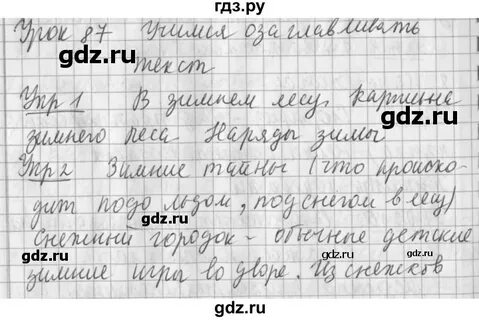 гдз.ру
Урок 87 Учимся озаглавливать
текст
Упр 1 В зимнем лесу. Картина
зимнего леса Наряды зимы
Упр 2 Зимние тайны (что происхо-
дит подо льдом, под снегом в лесу)
Снежный городок - обычные детские
зимние игры во дворе. Из снежков
gdz.ru
gdz.ru
gdz.ru
gdz.ru
gdz.ru
gdz.ru